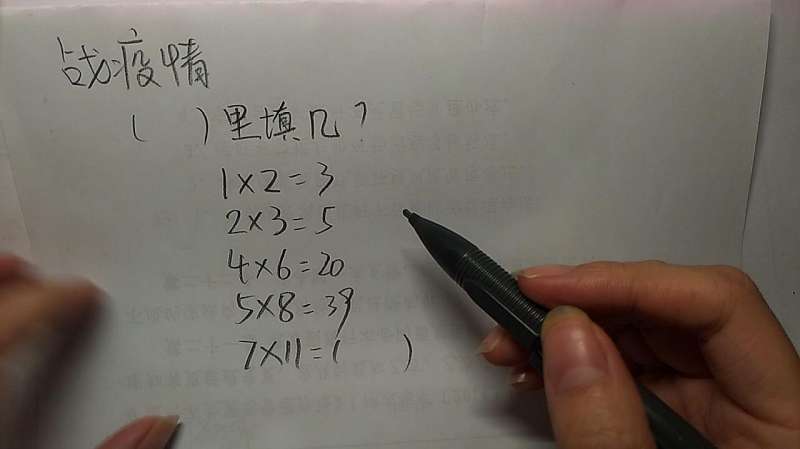 战疫情
( )里填几?
1×2=3
2×3=5
4×6=20
5×8=39
7×11=( )